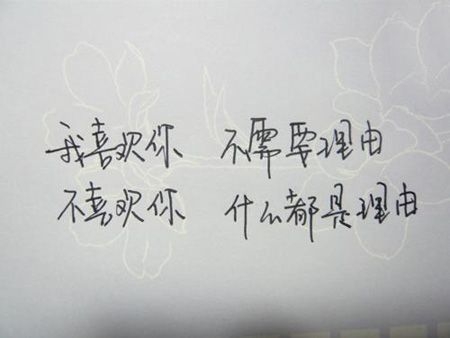 我喜欢你 不需要理由
不喜欢你 什么都是理由